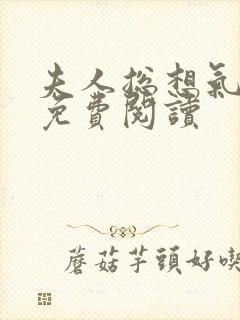 夫人總想氣
免費閱讀
蘑菇芋頭好喫